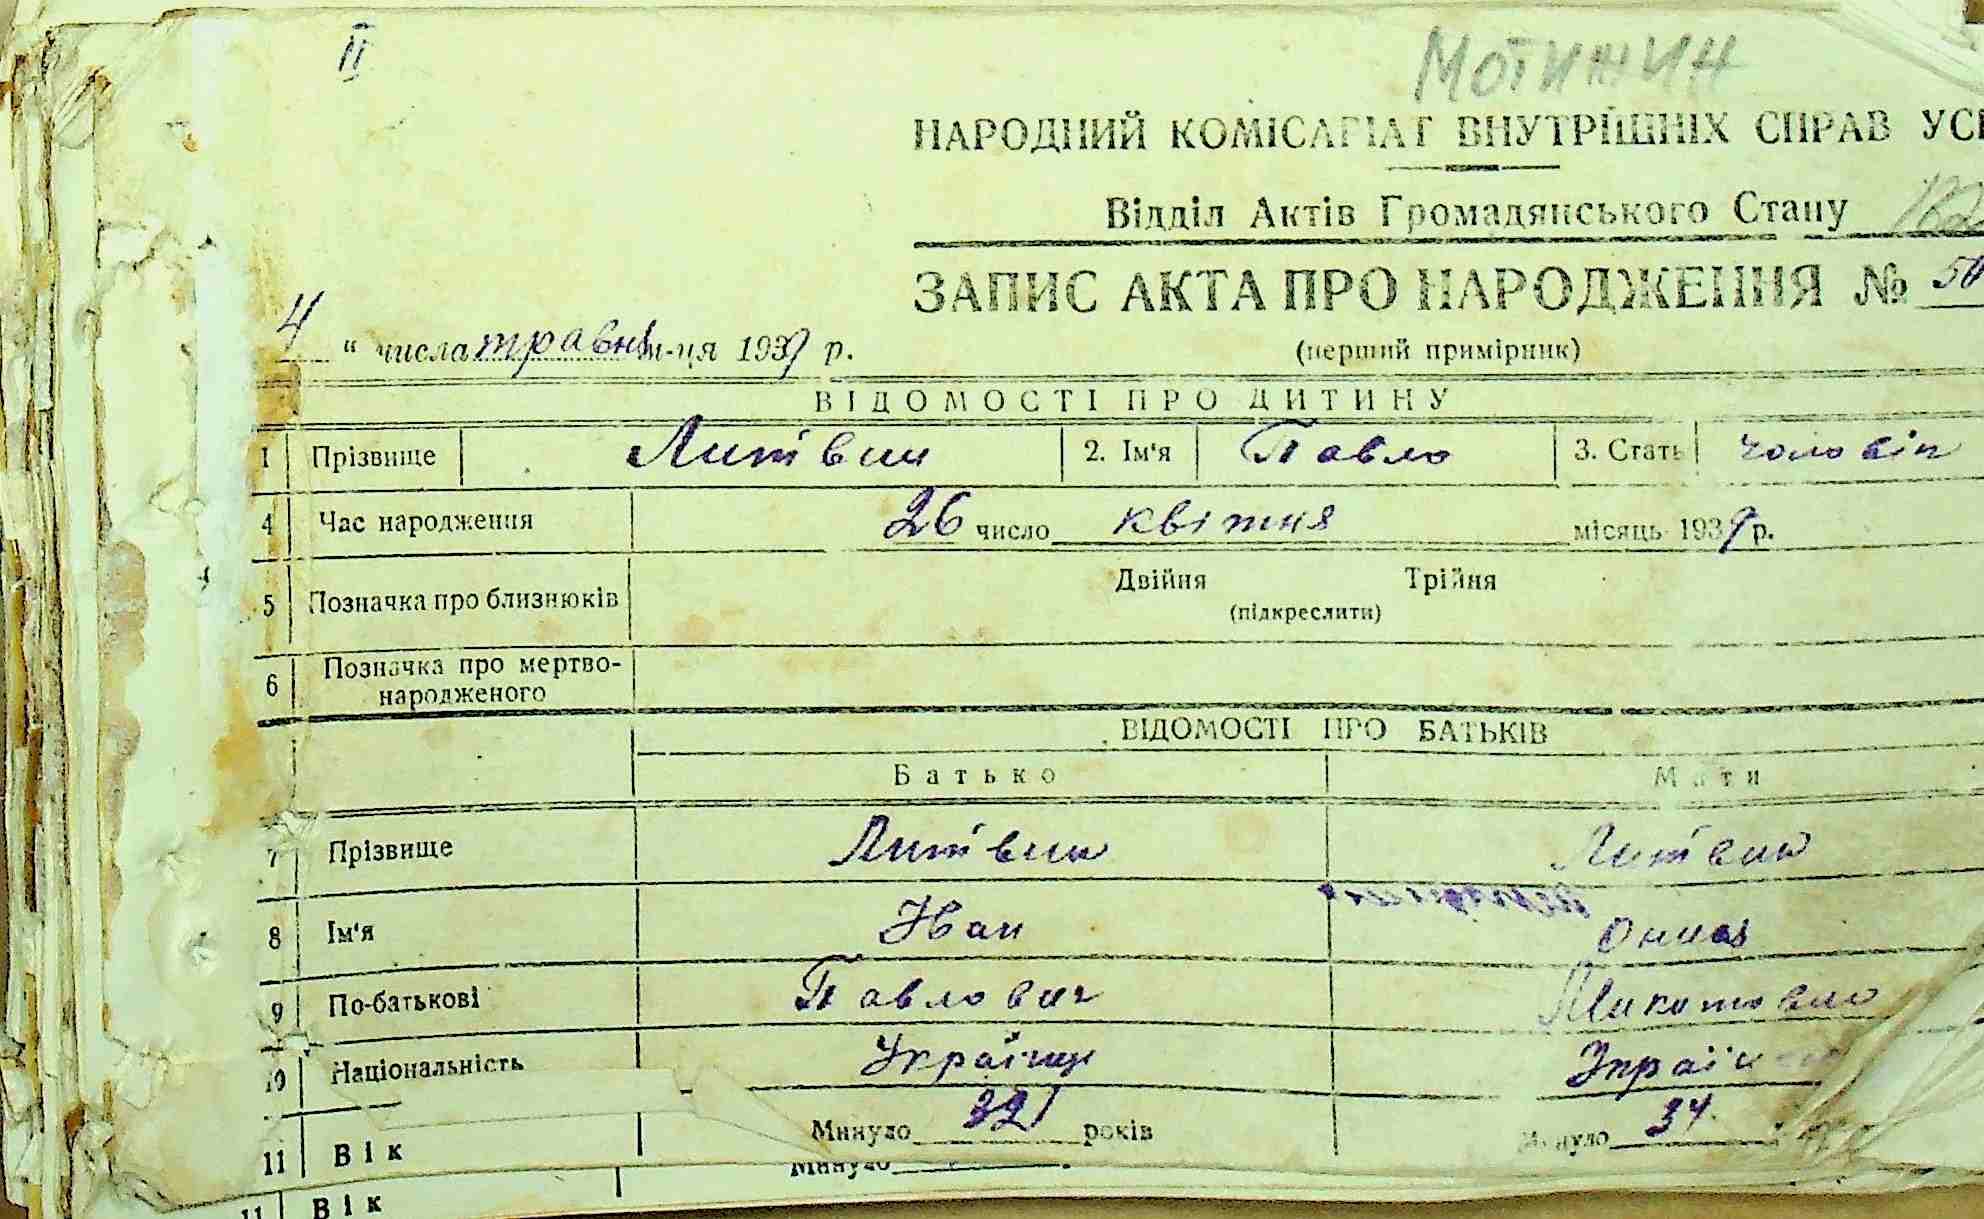 II
Мотижин
НАРОДНИЙ КОМІСАРІАТ ВНУТРІШНІХ СПРАВ
Відділ Актів Громадянського Стану
ЗАПИС АКТА ПРО НАРОДЖЕННЯ № 50
4 " числа травня м-ця 1939 р.
(перший примірник)
ВІДОМОСТІ ПРО ДИТИНУ
1 Прізвище Литвин 2. Ім'я Павло 3. Стать чоловіч
4 Час народження 26 число квітня місяць 1939 р.
5 Позначка про близнюків Двійня Трійня
(підкреслити)
6 Позначка про мертво-
народженого
ВІДОМОСТІ ПРО БАТЬКІВ
Батько Мати
7 Прізвище Литвин Литвин
8 Ім'я Иван
9 По-батькові Павлович
10 Національність Україець
11 Вік Минуло 32 років Минуло 34
11 Вік Минуло